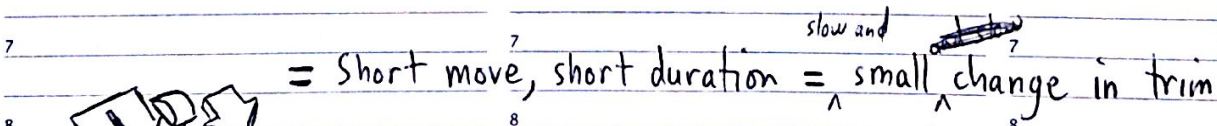 7 7 slow and 7
= Short move, short duration = small change in trim
8 8 8